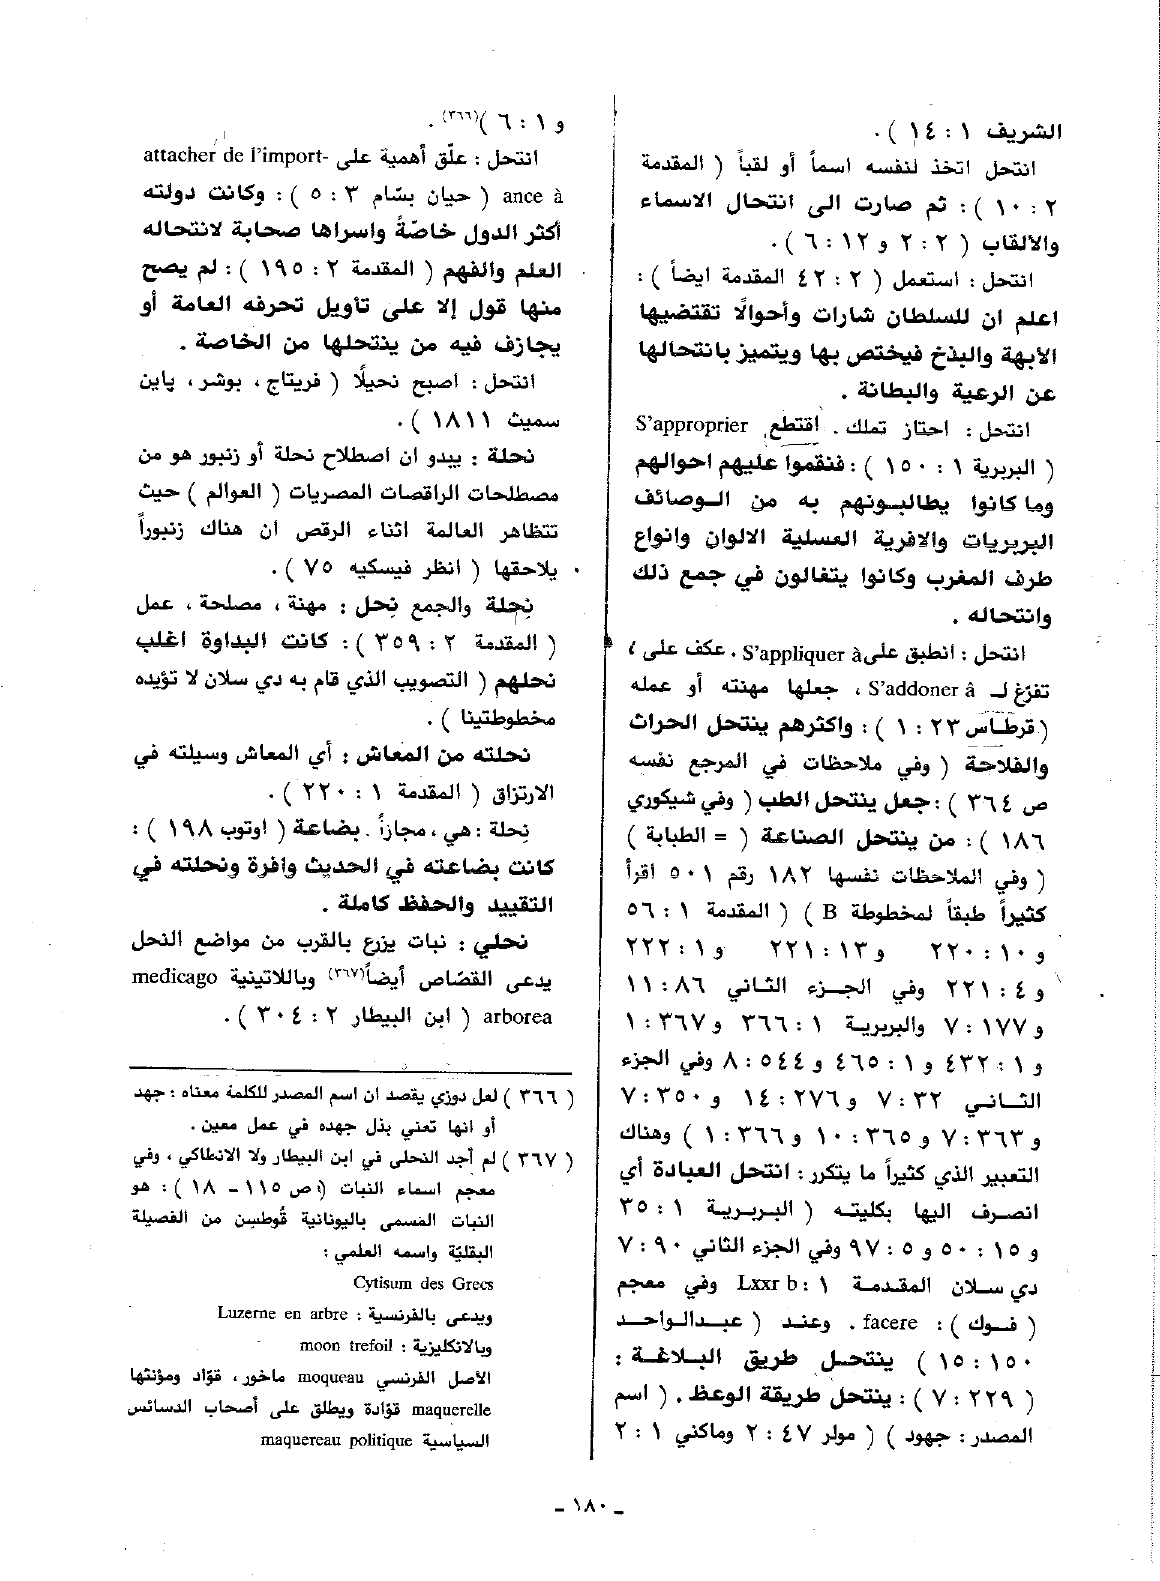 الشريف ١ : ١٤ ) .
انتحل اتخذ لنفسه اسماً أو لقباً ( المقدمة
٢ : ١٠ ) : ثم صارت الى انتحال الاسماء
والألقاب ( ٢ : ٢ و ١٢ : ٦ ) .
انتحل : استعمل ( ٢ : ٤٢ المقدمة ايضاً ) :
اعلم ان للسلطان شارات وأحوالًا تقتضيها
الابهة والبذخ فيختص بها ويتميز بانتحالها
عن الرعية والبطانة .
انتحل : احتاز تملك . اقتطع، S'approprier
( البربرية ١ : ١٥٠ ) : فنقموا عليهم احوالهم
وما كانوا يطالبونهم به من الوصائف
البربريات والافرية العسلية الالوان وانواع
طرف المغرب وكانوا يتغالون في جمع ذلك
وانتحاله .
انتحل : انطبق على S'appliquer à . عكف على ،
تفرّغ لـ S'addoner à ، جعلها مهنته أو عمله
( قرطاس ٢٣ : ١ ) : واكثرهم ينتحل الحراث
والفلاحة ( وفي ملاحظات في المرجع نفسه
ص ٣٦٤ ) : جعل ينتحل الطب ( وفي شيكوري
١٨٦ ) : من ينتحل الصناعة ( = الطبابة )
( وفي الملاحظات نفسها ١٨٢ رقم ٥٠١ اقرأ
كثيراً طبقاً لمخطوطة B ) ( المقدمة ١ : ٥٦
و ١٠ : ٢٢٠ و ١٣ : ٢٢١ و ١ : ٢٢٢
و ٤ : ٢٢١ وفي الجزء الثاني ٨٦ : ١١
و ١٧٧ : ٧ والبربرية ١ : ٣٦٦ و ٣٦٧ : ١
و ٤٣٢ : ١ و ٤٦٥ : ١ و ٥٤٤ : ٨ وفي الجزء
الثاني ٣٢ : ٧ و ٢٧٦ : ١٤ و ٣٥٠ : ٧
و ٣٦٣ : ٧ و ٣٦٥ : ١٠ و ٣٦٦ : ١ ) وهناك
التعبير الذي كثيراً ما يتكرر : انتحل العبادة أي
انصرف اليها بكليته ( البربرية ١ : ٣٥
و ١٥ : ٥٠ و ٥ : ٩٧ وفي الجزء الثاني ٩٠ : ٧
دي سلان المقدمة ١ : Lxxr b وفي معجم
( فوك ) : facere . وعند ( عبدالواحد
١٥٠ : ١٥ ) ينتحل طريق البلاغة :
( ٢٢٩ : ٧ ) : ينتحل طريقة الوعظ . ( اسم
المصدر : جهود ) ( مولر ٤٧ : ٢ وماكني ١ : ٢
و ١ : ٦ )(٣٦٦) .
انتحل : علّق أهمية على attacher de l'import-
ance à ( حيان بسّام ٣ : ٥ ) : وكانت دولته
أكثر الدول خاصّةً واسراها صحابة لانتحاله
العلم والفهم ( المقدمة ٢ : ١٩٥ ) : لم يصح
منها قول إلا على تأويل تحرفه العامة أو
يجازف فيه من ينتحلها من الخاصة .
انتحل : اصبح نحيلًا ( فريتاج ، بوشر ، پاين
سميث ١٨١١ ) .
نحلة : يبدو ان اصطلاح نحلة أو زنبور هو من
مصطلحات الراقصات المصريات ( العوالم ) حيث
تتظاهر العالمة اثناء الرقص ان هناك زنبوراً
يلاحقها ( انظر فيسكيه ٧٥ ) .
نِحلة والجمع نِحل : مهنة ، مصلحة ، عمل
( المقدمة ٢ : ٣٥٩ ) : كانت البداوة اغلب
نحلهم ( التصويب الذي قام به دي سلان لا تؤيده
مخطوطتينا ) .
نحلته من المعاش : أي المعاش وسيلته في
الارتزاق ( المقدمة ١ : ٢٢٠ ) .
نِحلة : هي ، مجازاً . بضاعة ( اوتوب ١٩٨ ) :
كانت بضاعته في الحديث وافرة ونحلته في
التقييد والحفظ كاملة .
نحلي : نبات يزرع بالقرب من مواضع النحل
يدعى القصّاص أيضاً(٣٦٧) وباللاتينية medicago
arborea ( ابن البيطار ٢ : ٣٠٤ ) .
( ٣٦٦ ) لعل دوزي يقصد ان اسم المصدر للكلمة معناه : جهد
أو انها تعني بذل جهده في عمل معين .
( ٣٦٧ ) لم أجد النحلى في ابن البيطار ولا الانطاكي ، وفي
معجم اسماء النبات ( ص ١١٥ - ١٨ ) : هو
النبات المسمى باليونانية قُوطس من الفصيلة
البقليّة واسمه العلمي :
Cytisum des Grecs
ويدعى بالفرنسية : Luzerne en arbre
وبالانكليزية : moon trefoil
الأصل الفرنسي moqueau ماخور ، قوّاد ومؤنثها
maquerelle قوّادة ويطلق على أصحاب الدسائس
السياسية maquereau politique
ـ ١٨٠ ـ